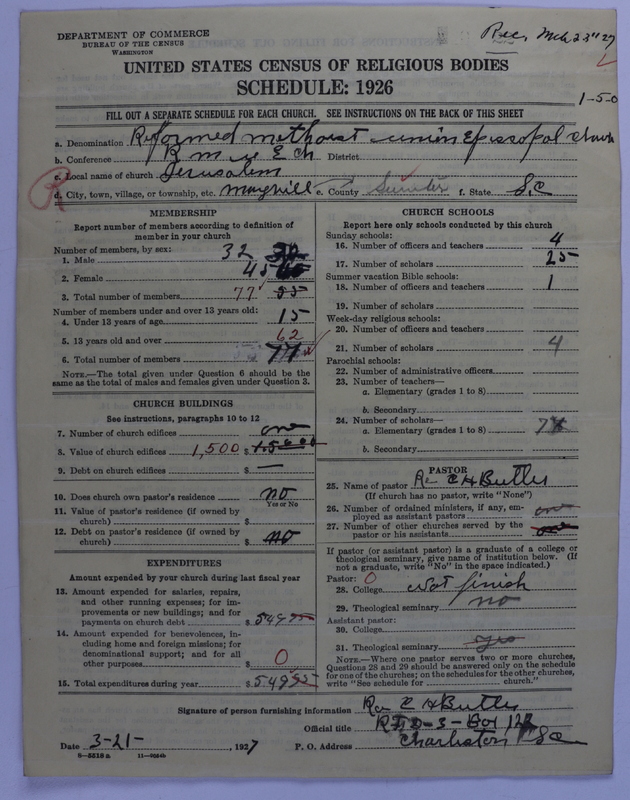 DEPARTMENT OF COMMERCE
BUREAU OF THE CENSUS
WASHINGTON
Rec. Mch 23" 27
UNITED STATES CENSUS OF RELIGIOUS BODIES
SCHEDULE: 1926
1-5-0
FILL OUT A SEPARATE SCHEDULE FOR EACH CHURCH. SEE INSTRUCTIONS ON THE BACK OF THIS SHEET
a. Denomination Reformed methoist union Episcopal church
b. Conference R m u E Ch District
c. Local name of church Jerusalem
R
d. City, town, village, or township, etc. Mayhill e. County Sumter f. State S.C
MEMBERSHIP
Report number of members according to definition of
member in your church
Number of members, by sex:
1. Male 32
2. Female 45
3. Total number of members 77
Number of members under and over 13 years old:
4. Under 13 years of age 15
5. 13 years old and over 62
6. Total number of members 77
NOTE.—The total given under Question 6 should be the
same as the total of males and females given under Question 3.
CHURCH BUILDINGS
See instructions, paragraphs 10 to 12
7. Number of church edifices one
8. Value of church edifices 1,500 $
9. Debt on church edifices $ —
10. Does church own pastor's residence no
Yes or No
11. Value of pastor's residence (if owned by
church) $
12. Debt on pastor's residence (if owned by
church) $ no
EXPENDITURES
Amount expended by your church during last fiscal year
13. Amount expended for salaries, repairs,
and other running expenses; for im-
provements or new buildings; and for
payments on church debt $ 549 95
14. Amount expended for benevolences, in-
cluding home and foreign missions; for
denominational support; and for all
other purposes $ 0
15. Total expenditures during year $ 549 95
CHURCH SCHOOLS
Report here only schools conducted by this church
Sunday schools:
16. Number of officers and teachers 4
17. Number of scholars 25
Summer vacation Bible schools:
18. Number of officers and teachers 1
19. Number of scholars
Week-day religious schools:
20. Number of officers and teachers
21. Number of scholars 4
Parochial schools:
22. Number of administrative officers
23. Number of teachers—
a. Elementary (grades 1 to 8)
b. Secondary
24. Number of scholars—
a. Elementary (grades 1 to 8)
b. Secondary
PASTOR
25. Name of pastor Re C H Butler
(If church has no pastor, write "None")
26. Number of ordained ministers, if any, em-
ployed as assistant pastors one
27. Number of other churches served by the
pastor or his assistants one
If pastor (or assistant pastor) is a graduate of a college or
theological seminary, give name of institution below. (If
not a graduate, write "No" in the space indicated.)
Pastor: 0
28. College not finish
29. Theological seminary no
Assistant pastor:
30. College
31. Theological seminary yes
NOTE.—Where one pastor serves two or more churches,
Questions 28 and 29 should be answered only on the schedule
for one of the churches; on the schedules for the other churches,
write "See schedule for church."
Signature of person furnishing information Rev C H Butler
Official title RFD-3-Box 122
Date 3-21-, 1927 P. O. Address Charleston SC
8—5518a 11—9054b